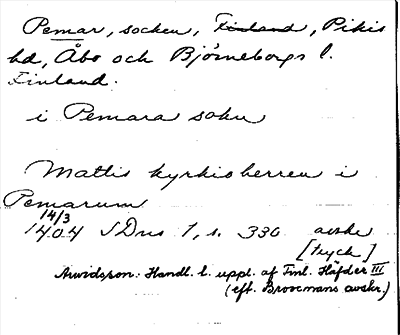 Pemar, socken, Finland, Pikis
hd, Åbo och Björneborgs l.
Finland.
i Pemara sokn
Mattis kyrkioherren i
Pemarum
14/3
1404 SDns 1, s. 330 avskr
[tryck]
Arwidsson: Handl. t. uppl. af Finl. Häfder III
(eft. Brocmans avskr.)